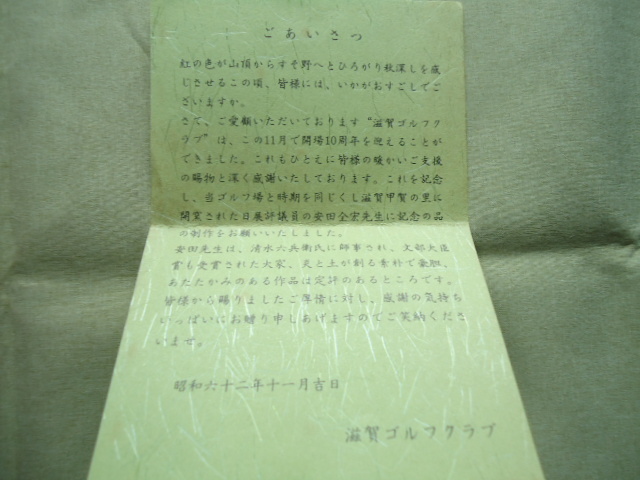 ごあいさつ
紅の色が山頂からすそ野へとひろがり秋深しを感
じさせるこの頃、皆様には、いかがおすごしでご
ざいますか。
さて、ご愛顧いただいております“滋賀ゴルフク
ラブ”は、この11月で開場10周年を迎えることが
できました。これもひとえに皆様の暖かいご支援
の賜物と深く感謝いたしております。これを記念
し、当ゴルフ場と時期を同じくし滋賀甲賀の里に
開窯された日展評議員の安田全宏先生に記念の品
の制作をお願いいたしました。
安田先生は、清水六兵衛氏に師事され、文部大臣
賞も受賞された大家、炎と土が創る素朴で豪胆、
あたたかみのある作品は定評のあるところです。
皆様から賜りましたご厚情に対し、感謝の気持ち
いっぱいにお贈り申しあげますのでご笑納くださ
いませ。
昭和六十二年十一月吉日
滋賀ゴルフクラブ